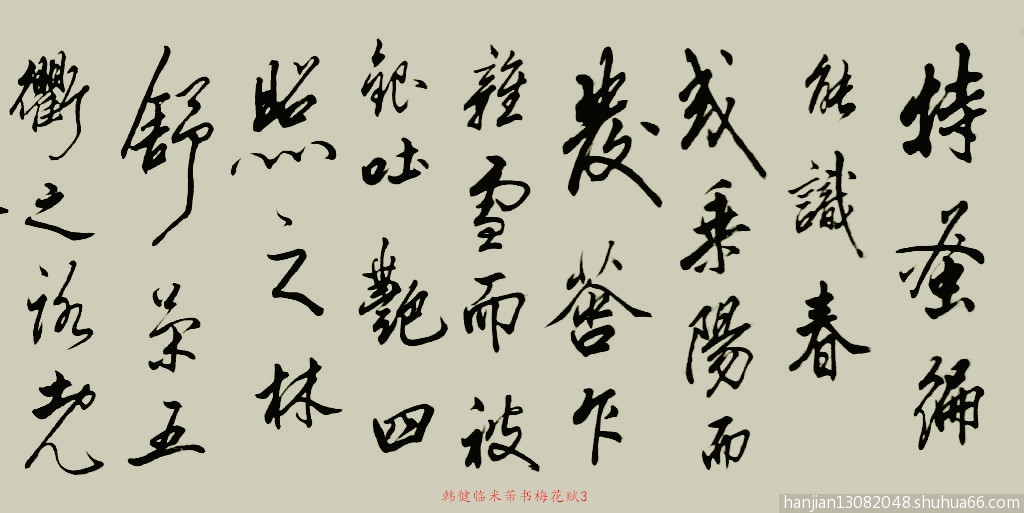 特蚤偏
能識春
或乗陽而
發乍
雜雪而被
銀吐艷四
照之林
舒榮五
衢之路
韩健临米芾书梅花赋3
hanjian13082048.shuhua66.com